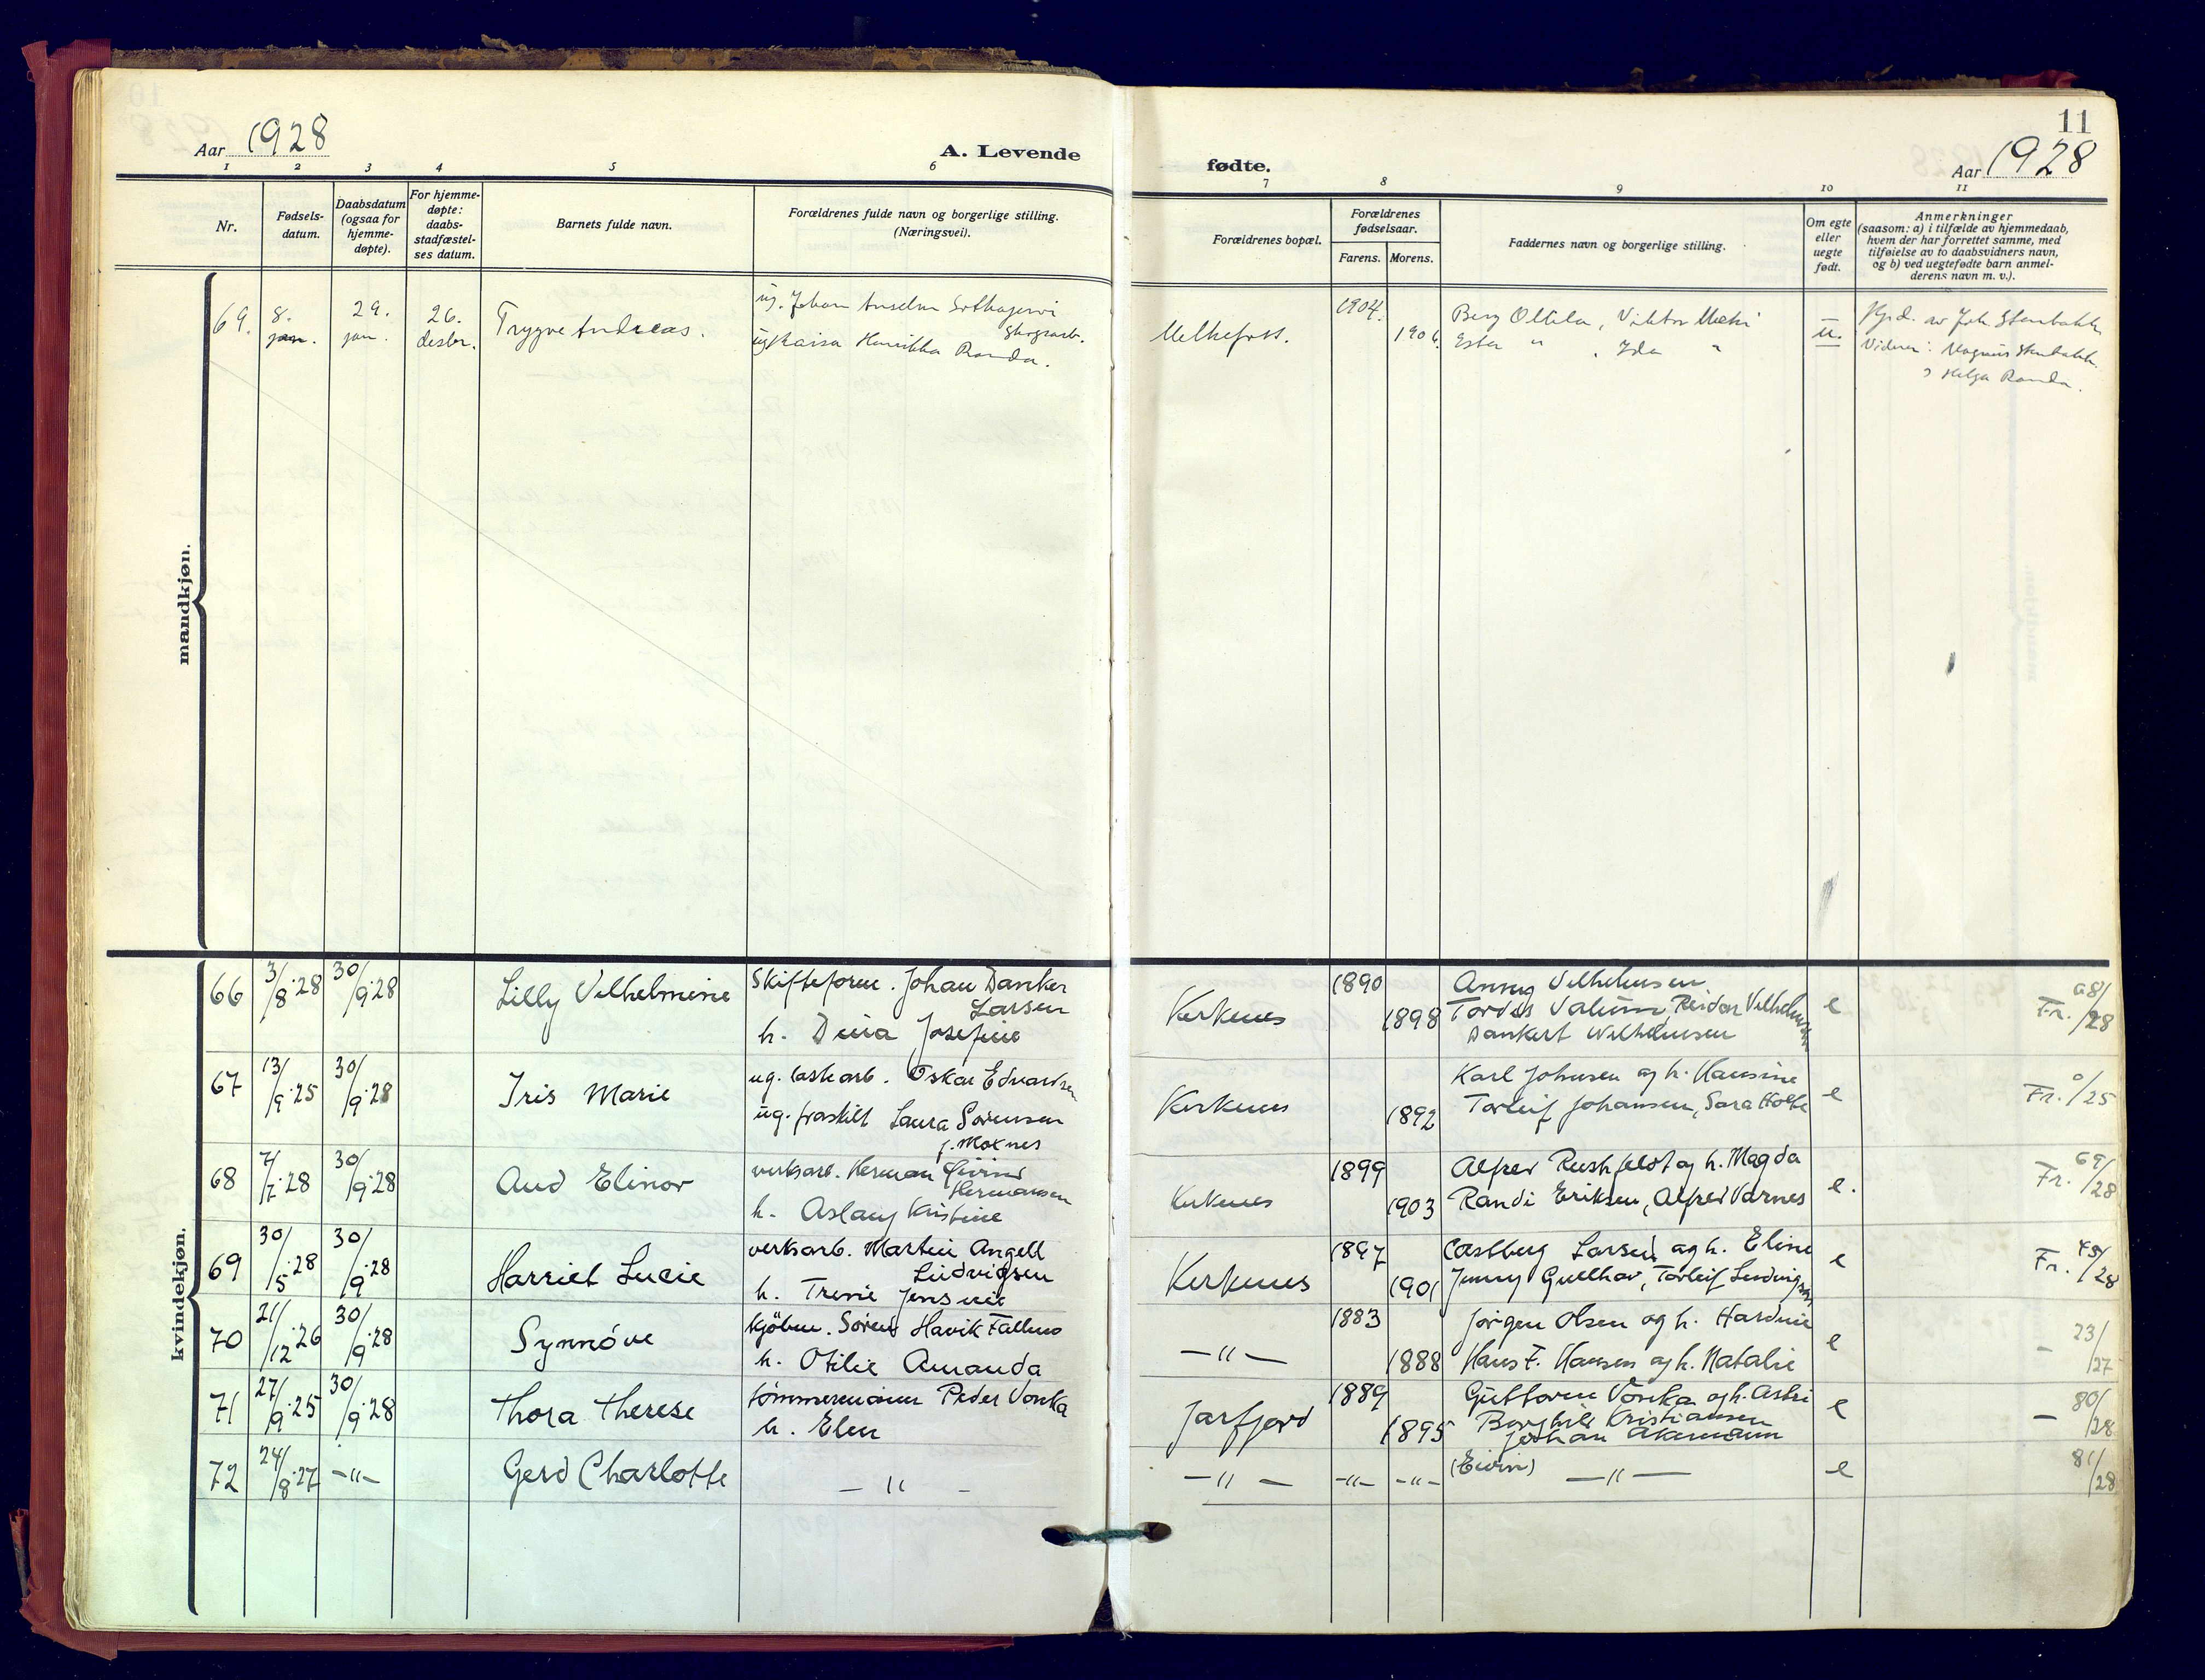 11
Aar 1928
A. Levende
fødte.
Aar 1928
1 2 3 4 5 6 7 8 9 10 11
Nr.
Fødsels-
datum.
Daabsdatum
(ogsaa for
hjemme-
døpte).
For hjemme-
døpte:
daabs-
stadfæstel-
ses datum.
Barnets fulde navn.
Forældrenes fulde navn og borgerlige stilling.
(Næringsvei).
Forældrenes bopæl.
Forældrenes
fødselsaar.
Farens. Morens.
Faddernes navn og borgerlige stilling.
Om egte
eller
uegte
født.
Anmerkninger
(saasom: a) i tilfælde av hjemmedaab,
hvem der har forrettet samme, med
tilføielse av to daabsvidners navn,
og b) ved uegtefødte barn anmel-
derens navn m. v.).
mandkjøn.
69. 8. jan. 29. jan. 26. desbr. Trygve Andreas.
ug. Johan Anselm
Skogsarb.
ug Kaisa Henrikka Randa.
Melkefoss. 1904. 1906.
Berg Ollila, Viktor Mæki
Ester " , Ida "
u.
Hjd. av Joh. Stenbakk
Vidner: Magnus Stenbakk
o Helga Randa.
kvindekjøn.
66 3/8.28 30/9.28 Lilly Vilhelmine
Skifteform. Johan Danker
Larsen
h. Dina Josefine
Kirkenes 1890 1898
Anny Vilhelmsen
Tordis Valum, Reidar Vilhelmsen
Dankert Wilhelmsen
e Fr. 68/28
67 13/9.25 30/9.28 Iris Marie
ug. lastearb. Oskar Edvardsen
ug. fraskilt Laura Sørensen
f. Moxnes
Kirkenes 1892
Karl Johnsen og h. Hansine
Torleif Johansen, Sara Holte
e Fr. 0/25
68 7/7.28 30/9.28 Aud Elinor
verksarb. Herman Eivind
Hermansen
h. Aslaug Kristine
Kirkenes 1899 1903
Alfred Rushfeldt og h. Magda
Randi Eriksen, Alfred Varnes
e. Fr. 69/28
69 30/5.28 30/9.28 Harriet Lucie
verksarb. Martin Angell
Ludvigsen
h. Trine Jensine
Kirkenes 1897 1901
Castberg Larsen og h. Eline
Jenny Gullhav, Torleif Ludvigsen
e Fr. 45/28
70 21/12.26 30/9.28 Synnøve
kjøbm. Søren Havik Fallmo
h. Otilie Amanda
-"- 1883 1888
Jørgen Olsen og h. Hardine
Hans F. Hansen og h. Natalie
e - 23/27
71 27/9.25 30/9.28 Thora Therese
tømmermann Peder Vonka
h. Elen
Jarfjord 1889 1895
Guttorm Vonka og h. Astri
Borghild Kristiansen
Johan Akermann
e - 80/28
72 24/8.27 -"- Gerd Charlotte
-"-
-"- -"- -"-
(Eivin) -"-
e 81/28